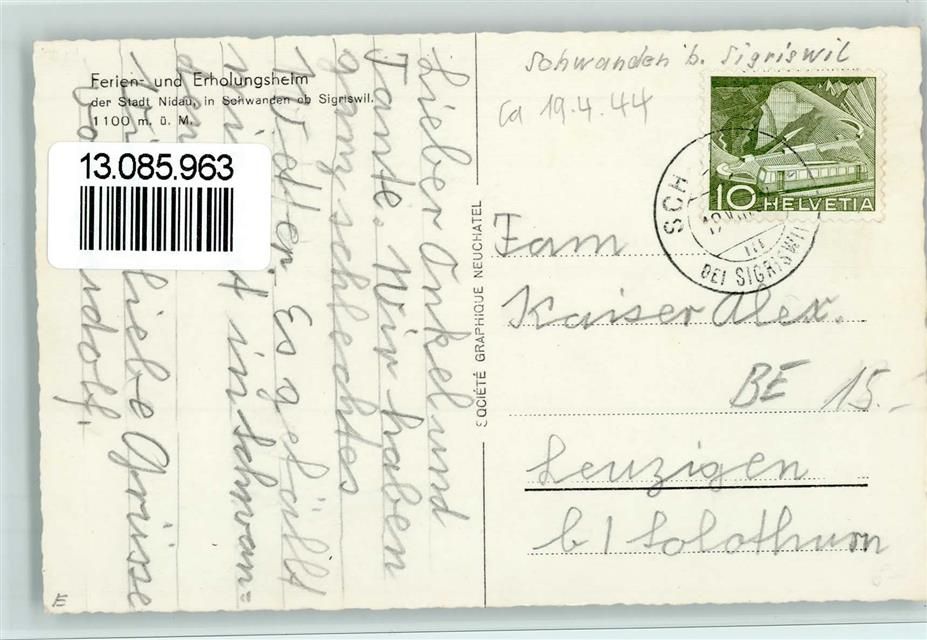 Ferien- und Erholungsheim
der Stadt Nidau, in Schwanden ob Sigriswil.
1100 m. ü. M.
13.085.963
Lieber Onkel und
Tante. Wir haben
ganz schlechtes
Wetter. Es gefällt
in schwan=
den
liebe Grüsse
SOCIÉTÉ GRAPHIQUE NEUCHATEL
Schwanden b. Sigriswil
ca 19.4.44
10 HELVETIA
SCH
BEI SIGRISWIL
Fam
Kaiser Alex.
BE 15.-
Leuzigen
b/ Solothurn
E